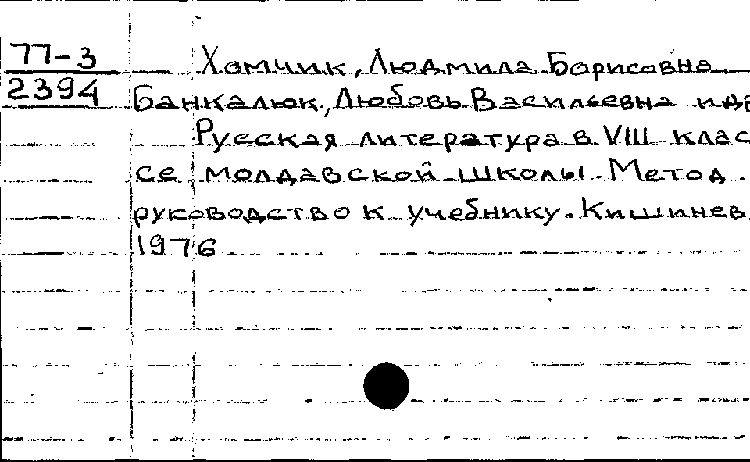 77-3 Хомчик, Людмила Борисовна
2394 Банкалюк, Любовь Васильевна и др
Русская литература в VIII клас
се молдавской школы. Метод.
руководство к учебнику. Кишинев,
1976